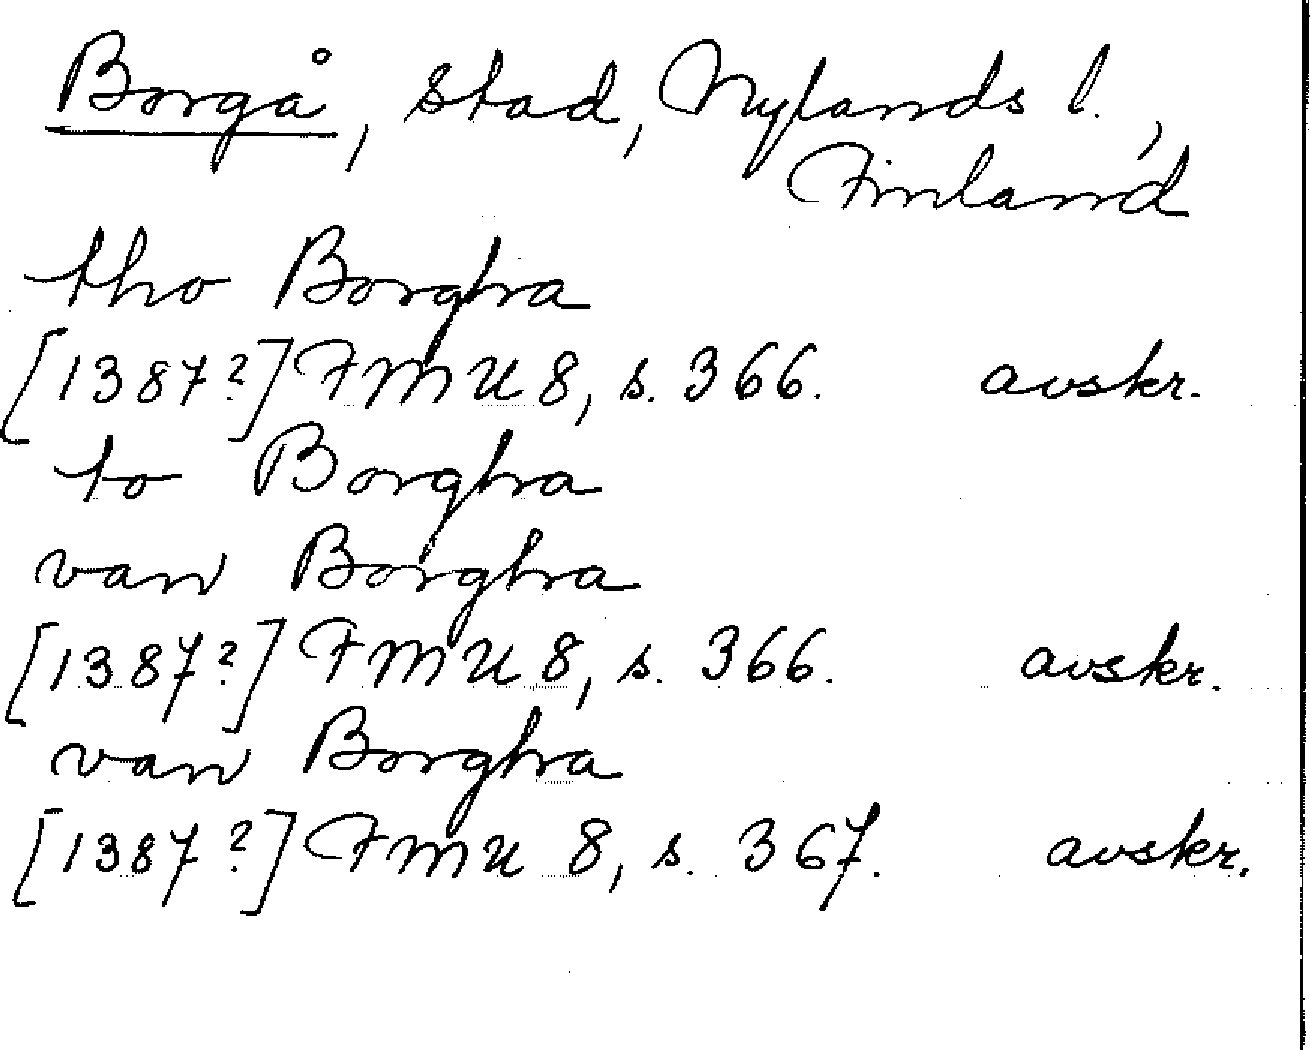 Borgå, stad, Nylands l.,
Finland
tho Borgha
[1387?] FMU 8, s. 366. avskr.
to Borgha
van Borgha
[1387?] FMU 8, s. 366. avskr.
van Borgha
[1387?] FMU 8, s. 367. avskr.